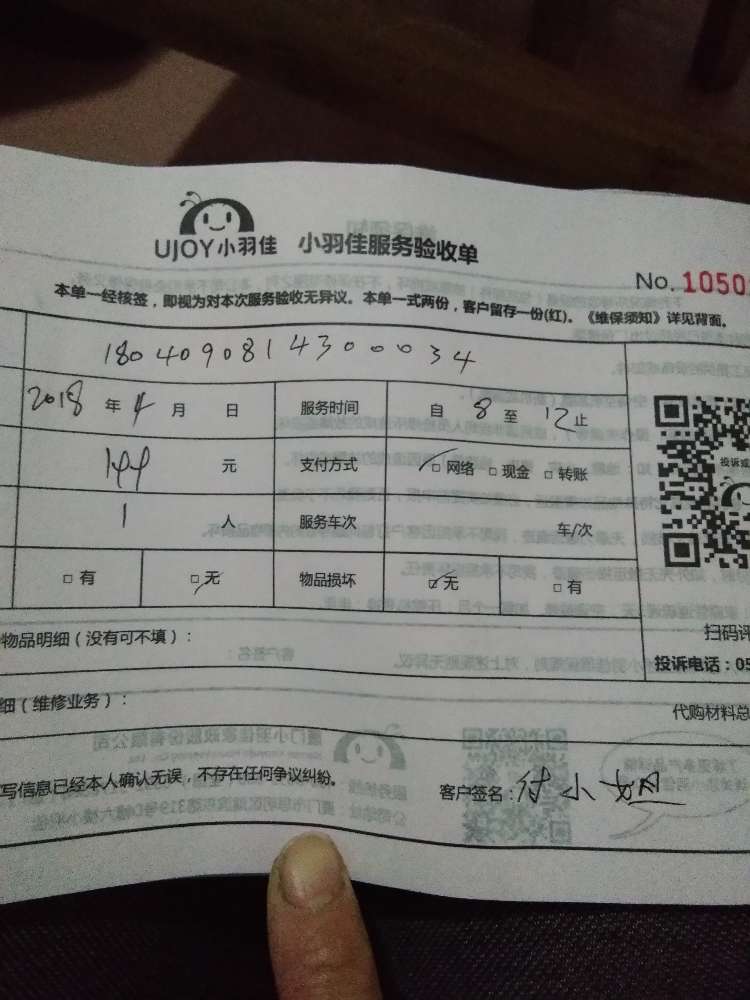 UJOY小羽佳 小羽佳服务验收单
No. 1050
本单一经核签，即视为对本次服务验收无异议。本单一式两份，客户留存一份(红)。《维保须知》详见背面。
18040908143000034
2018 年 4 月 日 服务时间 自 8 至 12 止
144 元 支付方式 ☑网络 □现金 □转账
投诉或
1 人 服务车次 车/次
□有 ☑无 物品损坏 ☑无 □有
物品明细（没有可不填）：
扫码评
投诉电话：05
细（维修业务）：
代购材料总
写信息已经本人确认无误，不存在任何争议纠纷。
客户签名：付小姐